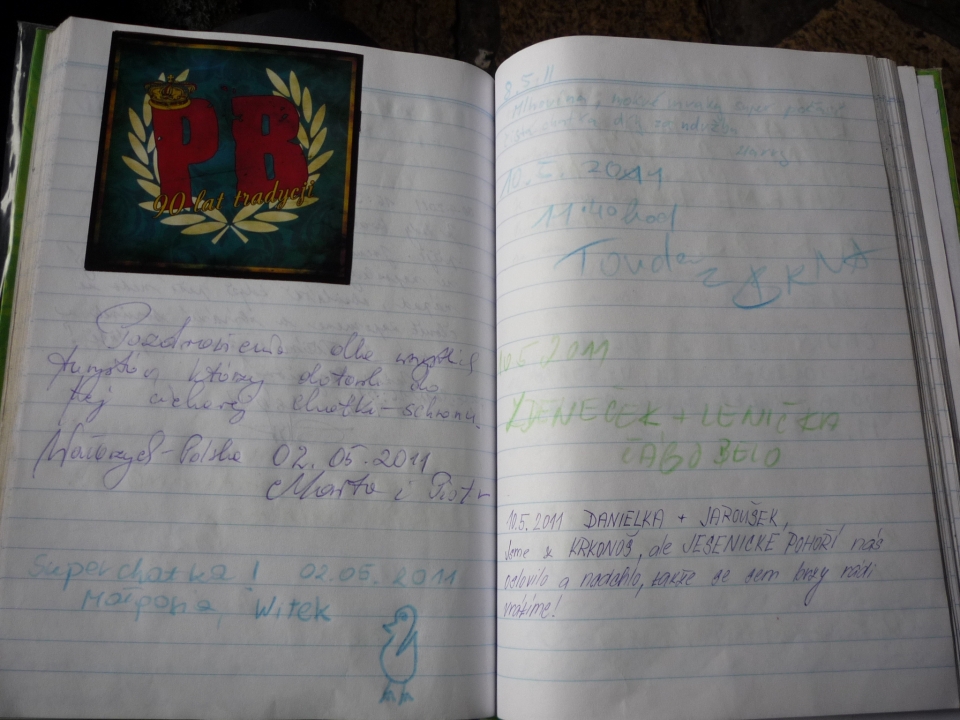 PB
90 lat tradycji
Pozdrowienia dla wszystkich
turystów którzy dotarli do
tej chatki-schronu
Wałbrzych-Polska 02.05.2011
Marta i Piotr
Superchatka! 02.05.2011
Małpona, Witek
8.5.11
10.5.2011
11:40 hod
Tonda
10.5.2011
ZDENEČEK + LENIČKA
ČABOBELO
10.5.2011 DANIELKA + JAROUŠEK,
Jsme z KRKONOŠ, ale JESENICKÉ POHOŘÍ nás
oslovilo a nadchlo, takže se sem brzy rádi
vrátíme!